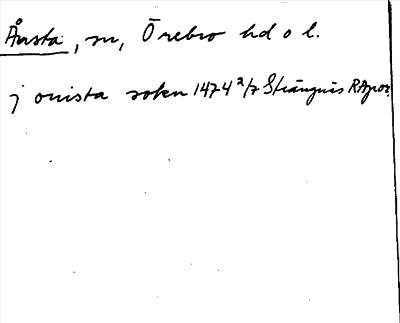 Ånsta, sn, Örebro hd o l.
j onista sokn 1474 2/7 Strängnäs RAp or.